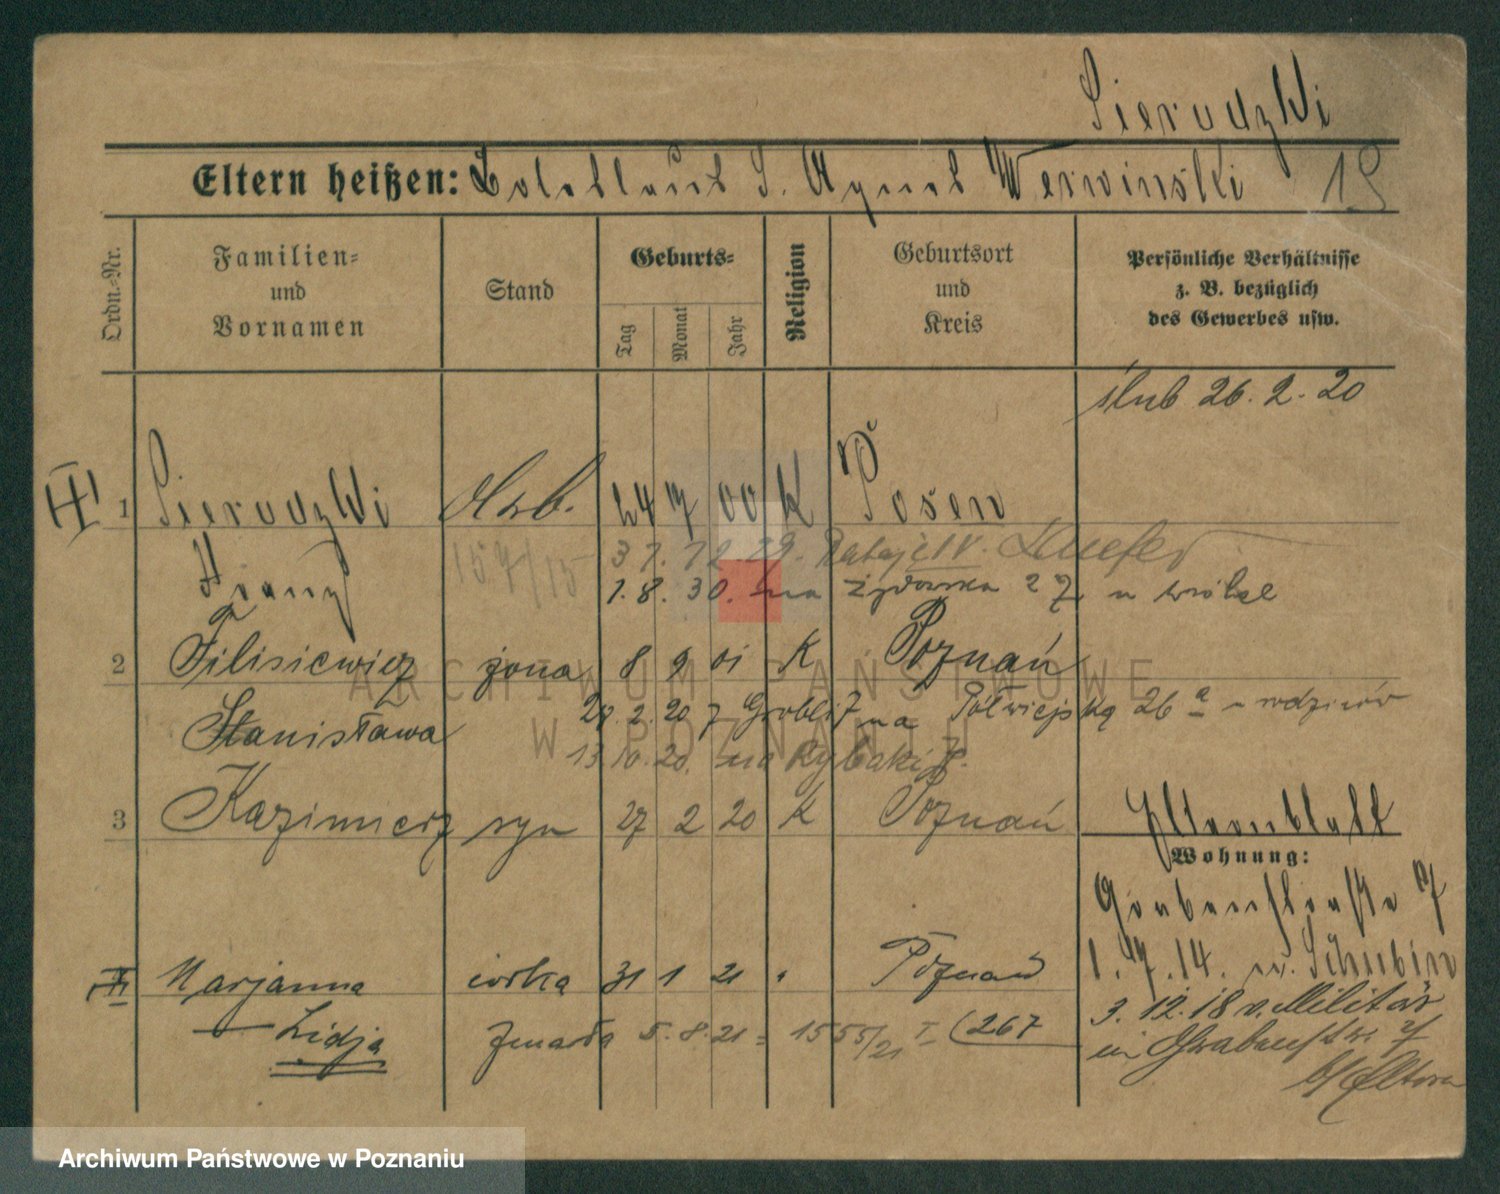 Sierodzki
Eltern heißen: S. Agnes Werwinski 19
Ordn.-Nr.
Familien-
und
Vornamen
Stand
Geburts-
Tag
Monat
Jahr
Religion
Geburtsort
und
Kreis
Persönliche Verhältnisse
z. B. bezüglich
des Gewerbes usw.
ślub 26.2.20
1 Sierodzki Arb. 24 7 00 K Posen
Franz 157/15 31.12.29. Rataje IV.
1.8.30. na Żydowska 27 u
2 Filisiewicz żona 8 9 01 K Poznań
Stanisława 28.2.20 7 Grobli 7 na Półwiejską 26a u rodziców
13.10.20. na Rybaki
3 Kazimierz syn 27 2 20 K Poznań
Elternblatt
Wohnung:
Grabenstraße 7
1.4.14. n. Schubin
Marjanna córka 31 1 21 " Poznań
3.12.18 v. Militär
Lidja zmarła 5.8.21 = 1555/21 I (267
in Grabenstr. 7
b/Eltern
ARCHIWUM PAŃSTWOWE
W POZNANIU
Archiwum Państwowe w Poznaniu